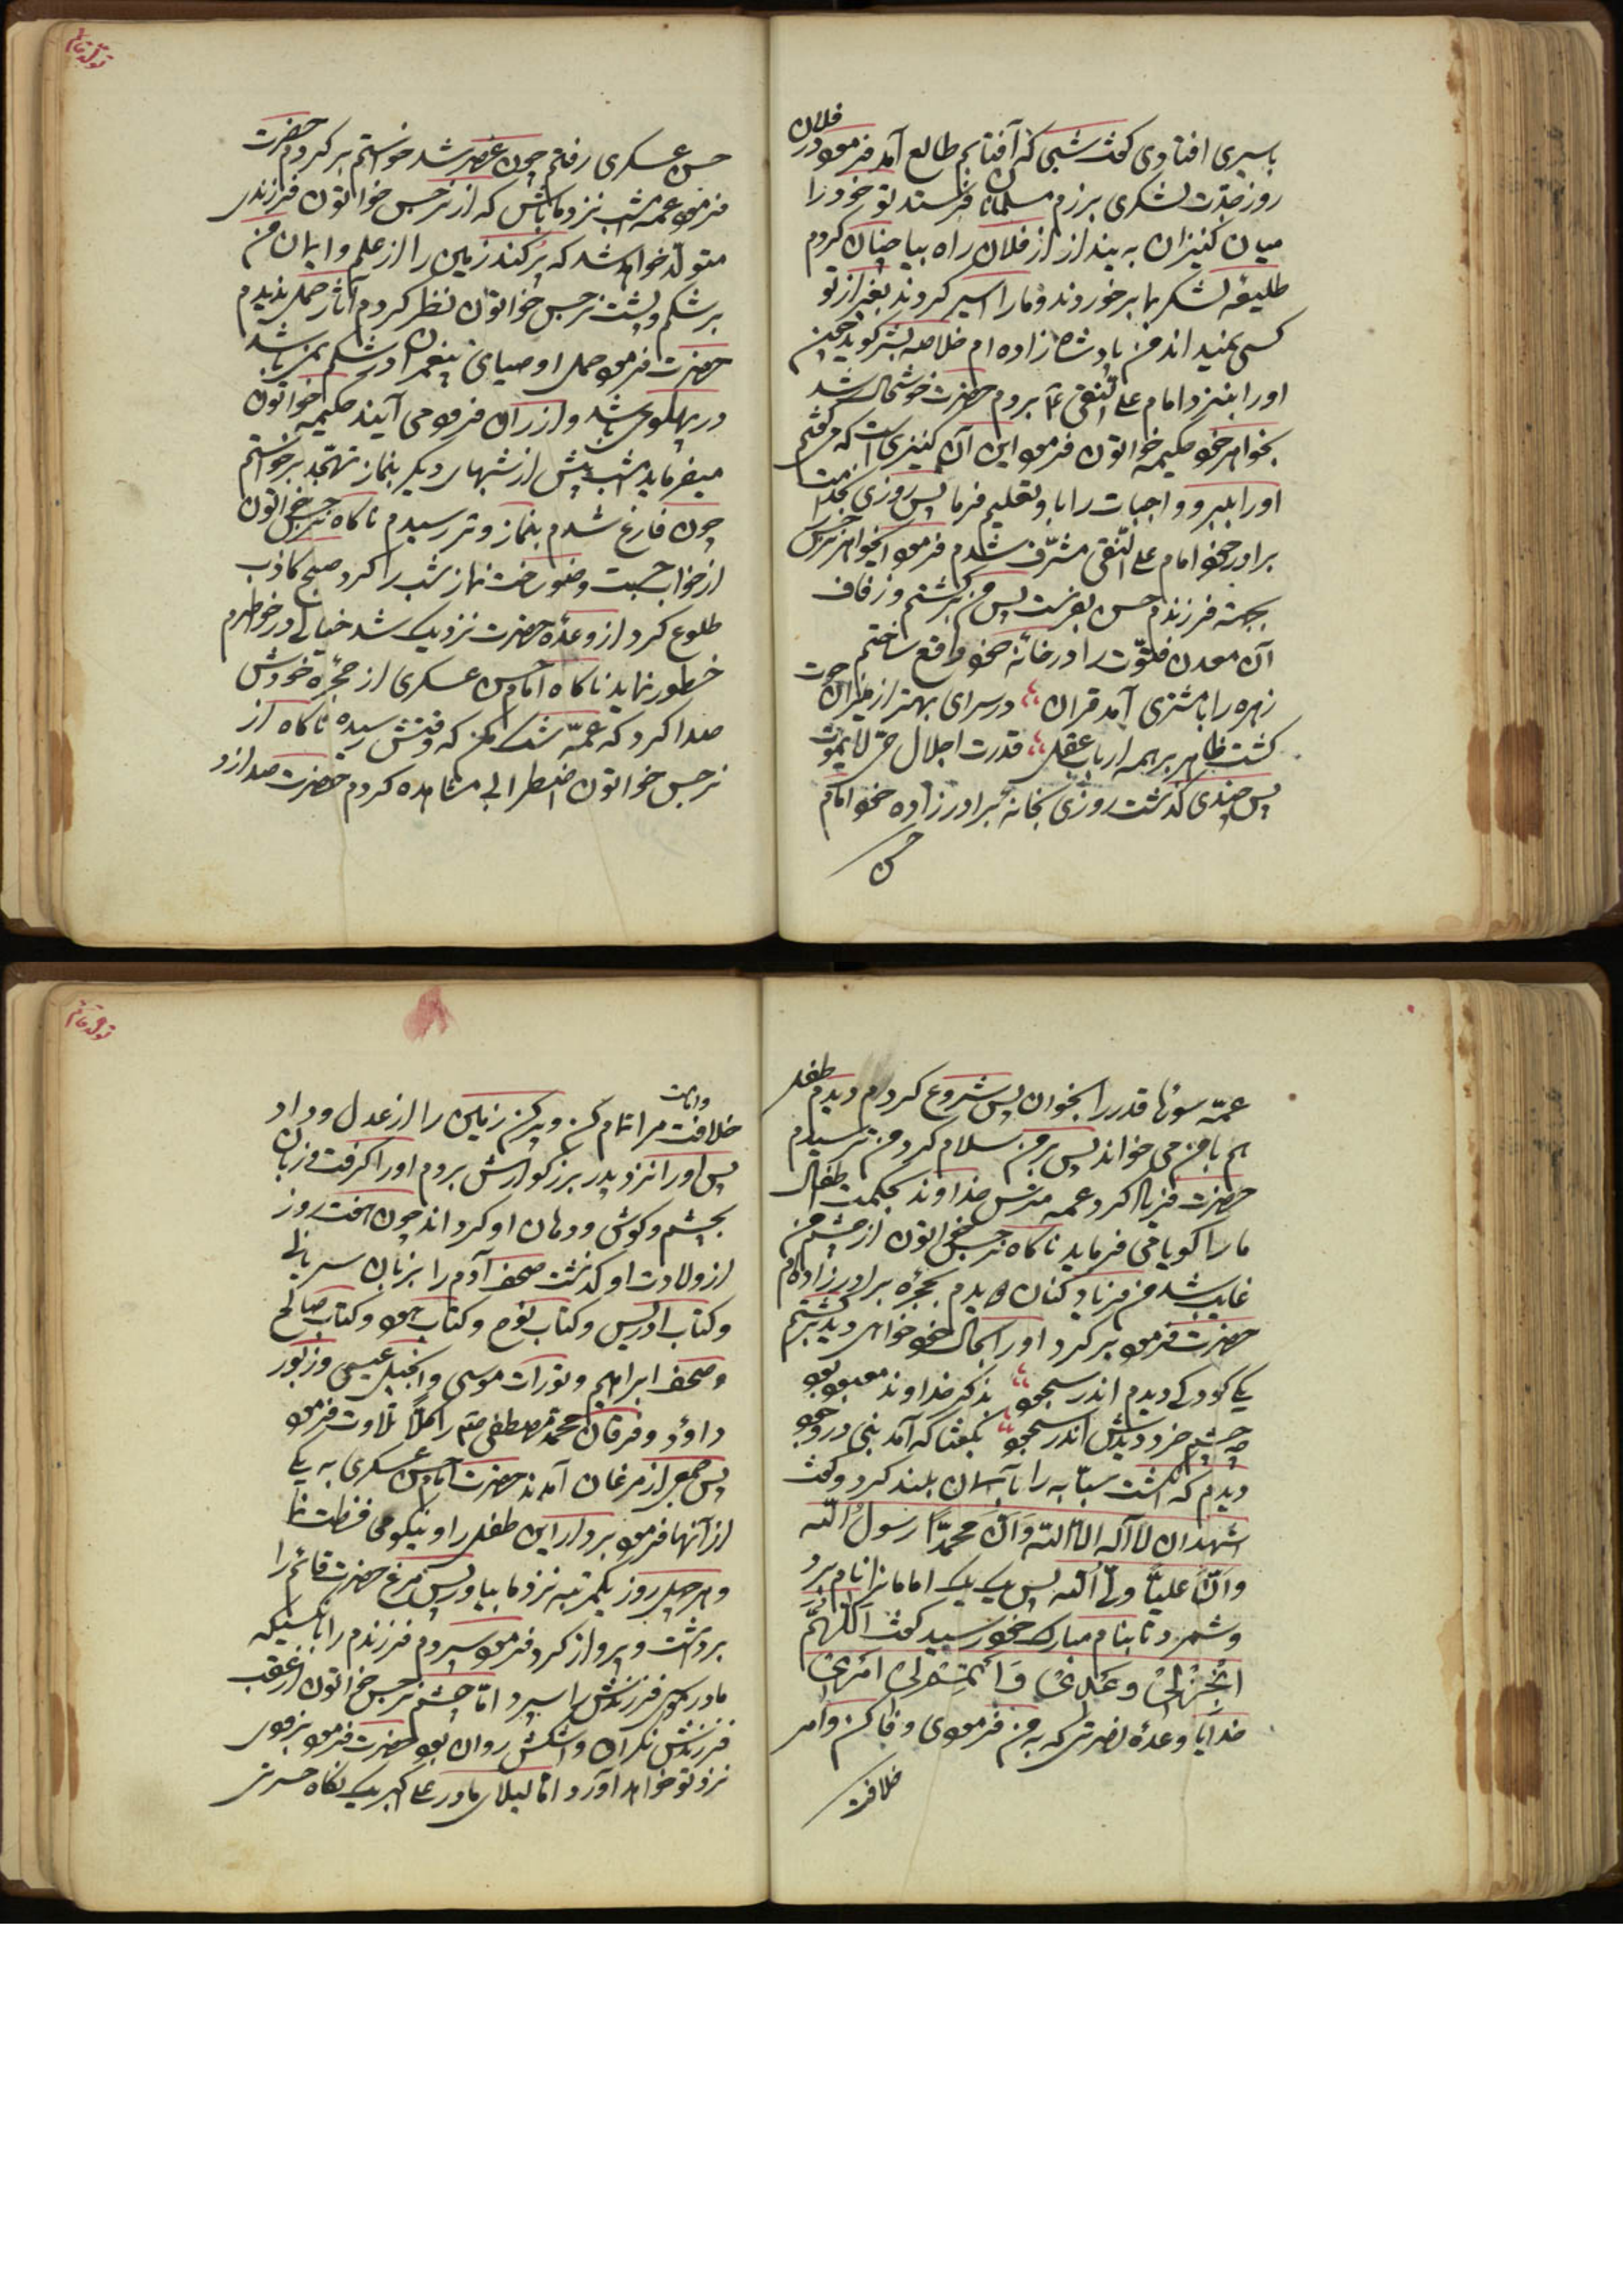 باسیری افتادی کفت شبی که آفتابم طالع آمد فرمود در فلان
روز جدت لشکری برزم مسلمانان فرستد تو خود را
میان کنیزان به بینداز از فلان راه بیا چنان کردم
طلیعه لشکر بما برخوردند و ما را اسیر کردند بغیر از تو
کسی نمیداند من پادشاه زاده ام خلاصه بشر کوید چون
او را بنزد امام علی النقی ع بردم حضرت خوشحال شد
بخواهر خود حکیمه خواتون فرمود این آن کنیزی است که میکفتم
او را ببر و واجبات را باو تعلیم فرما پس روزی بخدمت
برادر خود امام علی النقی مشرف شدم فرمود ایخواهر نرجس
بجهته فرزندم حسن بفرست پس من برکشتم و زفاف
آن معدن فتوت را در خانه خود واقع ساختم
زهره را با مشتری آمد قران در سرای بهتر از میزان حوت
کشت ظاهر بر همه ارباب عقل قدرت اجلال حی لایموت
پس چندی کذشت روزی بخانه برادر زاده خود امام
حسن
تولد قائم
حسن عسکری رفتم چون عصر شد خواستم برکردم حضرت
فرمود عمه امشب نزد ما باش که از نرجس خواتون فرزندی
متولد خواهد شد که پر کند زمین را از علم و ایمان من
بر شکم و پشت نرجس خواتون نظر کردم آثار حمل ندیدم
حضرت فرمود حمل اوصیای پیغمبران در شکم نمی باشد
در پهلو می باشد و از ران فرود می آیند حکیمه خواتون
میفرماید امشب پیش از شبهای دیکر بنماز تهجد برخواستم
چون فارغ شدم بنماز وتر رسیدم ناکاه نرجس خواتون
از خواب جست وضو ساخت نماز شب را کرد صبح کاذب
طلوع کرد از وعده حضرت نزدیک شد خیالی در خواطرم
خطور نماید ناکاه امام حسن عسکری از حجره خودش
صدا کرد که عمه شک مکن که وقتش رسیده ناکاه از
نرجس خواتون اضطرابی مشاهده کردم حضرت صدا زد
عمه سوره قدر را بخوان پس شروع کردم دیدم طفل
هم با من می خواند پس بر من سلام کرد من ترسیدم
حضرت فریاد کرد عمه مترس خداوند بحکمت اطفال
ما را کویا می فرماید ناکاه نرجس خواتون از چشم من
غایب شد من فریاد کنان دویدم بحجره برادر زاده ام
حضرت فرمود برکرد او را بحال خود خواهی دید برکشتم
یکی کودکی دیدم اندر سجود بذکر خداوند معبود بود
چه چشم خرد دیدش اندر سجود بکفتا که آمد نبی در وجود
دیدم که انکشت سبابه را بآسمان بلند کرد و کفت
اشهد ان لا اله الا الله و ان محمدا رسول الله
و ان علیا ولی الله پس یک یک امامانرا نام برد
و شمرد تا بنام مبارک خود رسید کفت اللهم
انجز لی وعدی و اتمم لی امری
خدایا وعده نصرتی که به من فرمودی وفا کن و امر
خلافت
تولد قائم
خلافت و امامت مرا تمام کن و پر کن زمین را از عدل و داد
پس او را نزد پدر بزرکوارش بردم او را کرفت و زبان
بچشم و کوش و دهان او کرداند چون هفت روز
از ولادت او کذشت صحف آدم را بزبان سریانی
و کتاب ادریس و کتاب نوح و کتاب هود و کتاب صالح
و صحف ابراهیم و تورات موسی و انجیل عیسی و زبور
داود و فرقان محمد مصطفی صلعم را کملا تلاوت فرمود
پس جمعی از مرغان آمدند حضرت امام حسن عسکری به یکی
از آنها فرمود بردار این طفل را و نیکو محافظت نما
و هر چهل روز یکمرتبه نزد ما بیاور پس مرغ حضرت قائم را
برداشت و پرواز کرد فرمود سپردم فرزندم را بآنکسیکه
مادر موسی فرزندش را سپرد اما چشم نرجس خواتون از عقب
فرزندش نکران و اشکش روان بود حضرت فرمود بزودی
نزد تو خواهد آورد اما لیلای مادر علی اکبر یک نکاه حسرتی